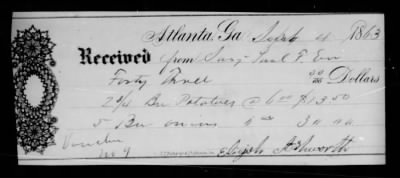 Atlanta, Ga Sept 4 1863
Received from Surg Paul F. Eve
Forty Three 00/100 Dollars
2 1/4 Bu Potatoes @ 6 00 $13.50
5 Bu onions
Voucher
No 9
Elijah Ashworth